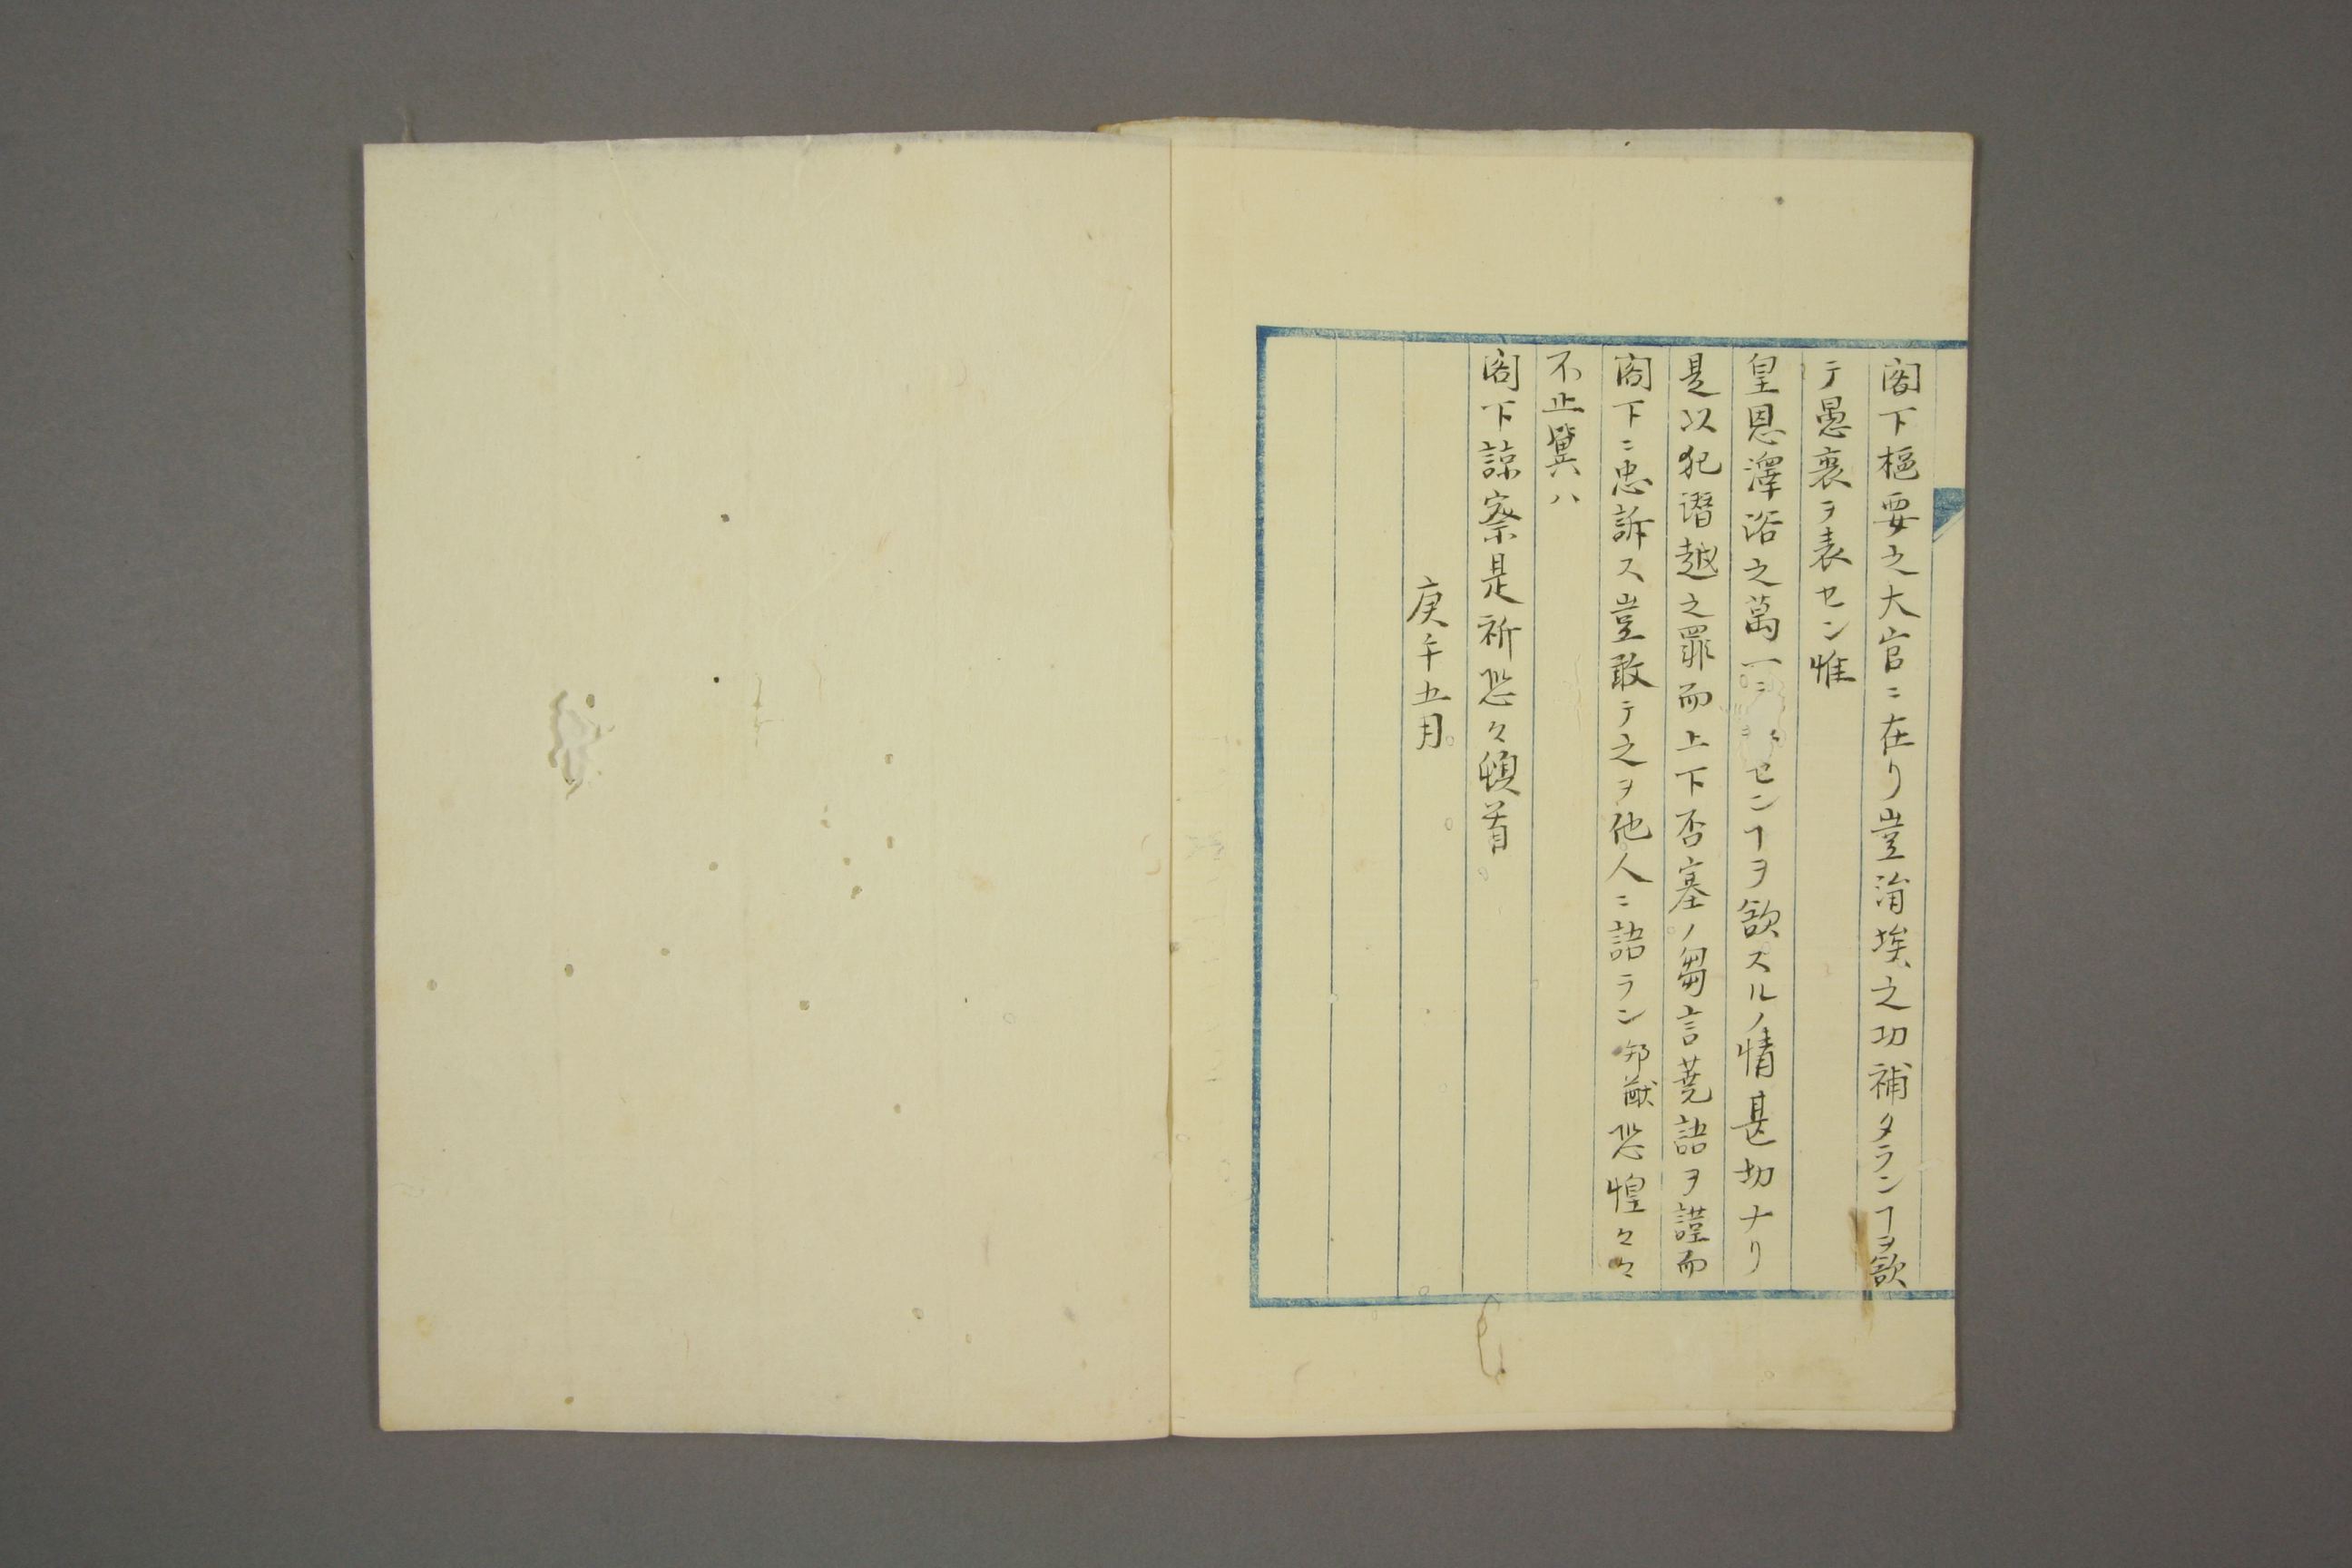 閣下樞要之大官ニ在リ豈涓埃之功補タランヿヲ欲
テ愚衷ヲ表セン惟
皇恩澤浴之萬一ニセンヿヲ欲スルノ情甚切ナリ
是以犯譖越之罪而上下否塞ノ芻言蕘語ヲ謹而
閣下ニ忠訴ス豈敢テ之ヲ他人ニ語ラン邦猷恐惶々々
不止冀ハ
閣下諒察是祈恐々頓首
庚午五月